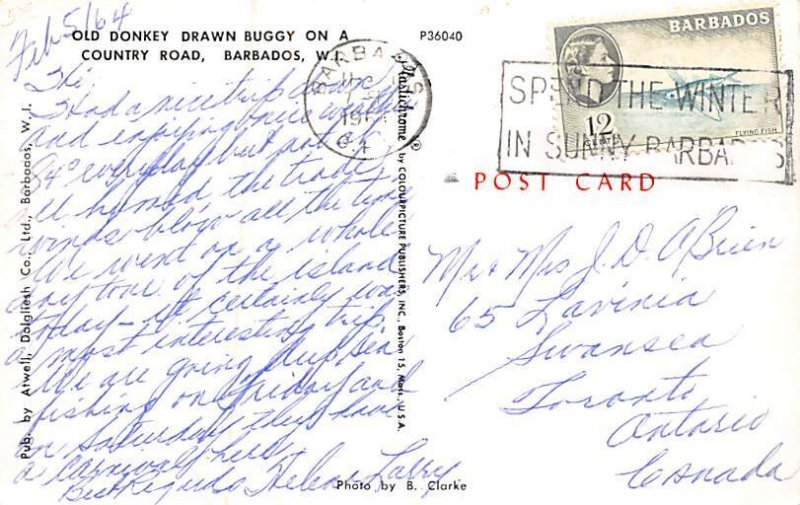 Feb 5/64
OLD DONKEY DRAWN BUGGY ON A
COUNTRY ROAD, BARBADOS, W.I.
P36040
Hi
Had a nice trip down
and enjoying nice weather
84° everyday but not at
all humid the trade
winds blow all the time
We went on a whole
day tour of the island
today - it certainly was
a most interesting trip.
We are going deep sea
fishing on Friday and
on Saturday they have
a carnival here.
Best Regards Helen & Larry
Photo by B. Clarke
Pub. by Atwell, Dalgliesh Co., Ltd., Barbados, W. I.
Plastichrome ® by COLOURPICTURE PUBLISHERS, INC., Boston 15, Mass., U.S.A.
BARBADOS
196
BARBADOS
12
CENTS
FLYING FISH
SPEND THE WINTER
IN SUNNY BARBADOS
POST CARD
Mr & Mrs J. D. O'Brien
65 Lavinia
Swansea
Toronto
Ontario
Canada